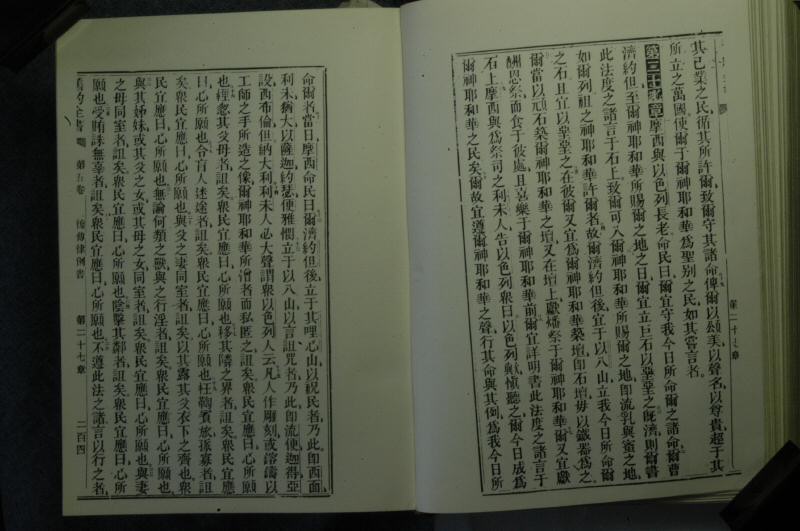 其己業之民循其所許爾致爾守其諸命俾爾以頌美以聲名以尊貴超于其
所立之萬國使爾于爾神耶和華爲聖別之民如其嘗言者
第二十七章摩西與以色列長老命民曰爾宜守我今日所命爾之諸命爾曹
濟約但至爾神耶和華所賜爾之地之日爾宜立巨石以堊堊之旣濟則爾書
此法度之諸言于石上致爾可入爾神耶和華所賜爾之地卽流乳與蜜之地
如爾列祖之神耶和華許爾者故爾濟約但後宜于以八山立我今日所命爾
之石且宜以堊堊之在彼爾又宜爲爾神耶和華築壇卽石壇毋以鐵器爲之
爾當以頑石築爾神耶和華之壇又在壇上獻燔祭于爾神耶和華爾又宜獻
酬恩祭而食于彼處且喜樂于爾神耶和華前爾宜詳明書此法度之諸言于
石上摩西與爲祭司之利未人告以色列衆曰以色列歟愼聽之爾今日成爲
爾神耶和華之民矣爾故宜遵爾神耶和華之聲行其命與其例爲我今日所
第二十七章
命爾者當日摩西命民曰爾濟約但後立于其哩心山以祝民者乃此卽西面
利未猶大以薩迦約瑟便雅憫立于以八山以言詛咒者乃此卽流便迦得亞
設西布倫但納大利利未人必大聲謂衆以色列人云凡人作雕刻或鎔鑄以
工師之手所造之像爾神耶和華所憎者而私匿之詛矣衆民宜應曰心所願
也輕忽其父母者詛矣衆民宜應曰心所願也移其隣之界者詛矣衆民宜應
曰心所願也令盲人迷途者詛矣衆民宜應曰心所願也枉鞫賓旅孤寡者詛
矣衆民宜應曰心所願也與父之妻同室者詛矣以其露其父衣下之齊也衆
民宜應曰心所願也無論何類之獸與之行淫者詛矣衆民宜應曰心所願也
與其姊妹或其父之女或其母之女同室者詛矣衆民宜應曰心所願也與妻
之母同室者詛矣衆民宜應曰心所願也陰擊其鄰者詛矣衆民宜應曰心所
願也受賄誅無辜者詛矣衆民宜應曰心所願也不遵此法之諸言以行之者
舊約全書 第五卷 復傳律例書 第二十七章 二百四